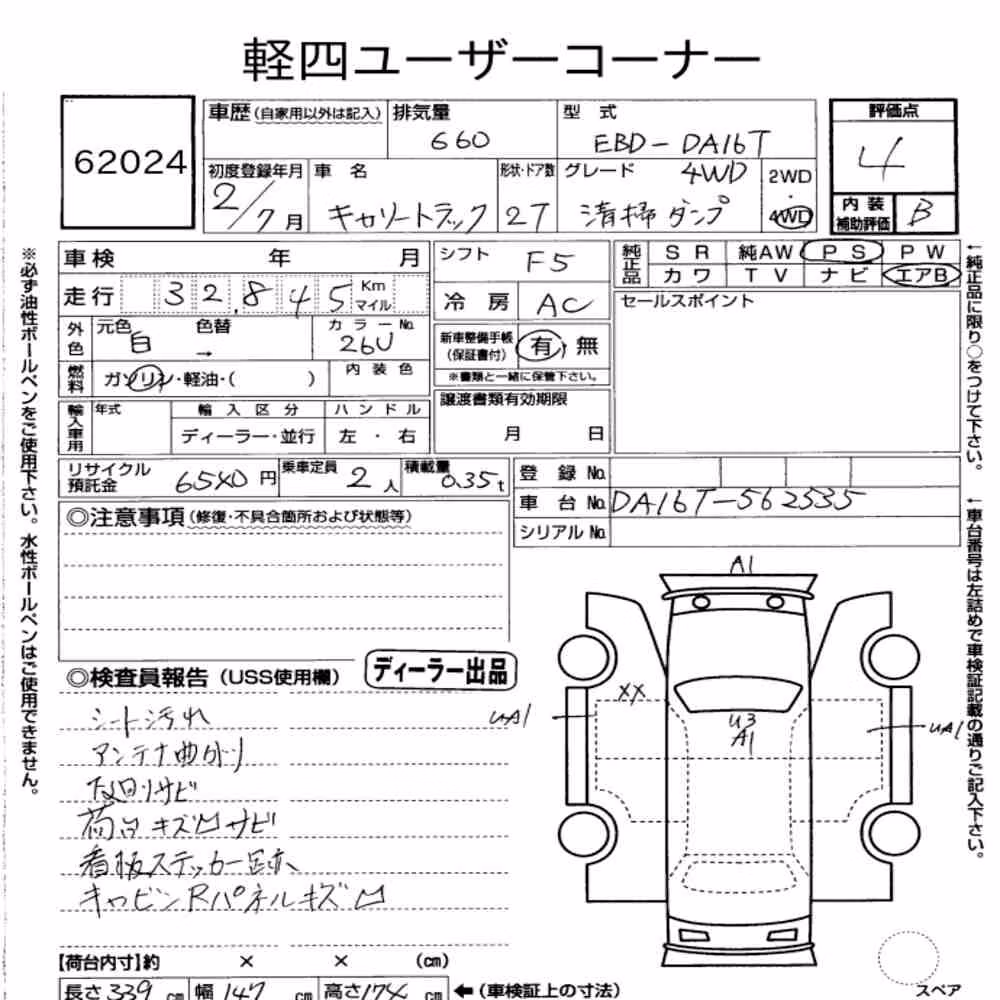 軽四ユーザーコーナー
62024
車歴(自家用以外は記入) 排気量 660 型式 EBD-DA16T
評価点 4
初度登録年月 2/7月 車名 キャリートラック 形状・ドア数 2T グレード 4WD 清掃ダンプ 2WD・4WD
内装補助評価 B
車検 年 月 シフト F5
純正品 SR 純AW PS PW
カワ TV ナビ エアB
走行 32,845 Km マイル 冷房 AC
セールスポイント
外色 元色 白 色替 → カラーNo. 26U
新車整備手帳(保証書付) 有・無
※書類と一緒に保管下さい。
燃料 ガソリン・軽油・( ) 内装色
輸入車用 年式 輸入区分 ハンドル
ディーラー・並行 左・右
譲渡書類有効期限
月 日
リサイクル預託金 6540円 乗車定員 2人 積載量 0.35t
登録No.
車台No. DA16T-562535
シリアルNo.
◎注意事項(修復・不具合箇所および状態等)
◎検査員報告(USS使用欄) ディーラー出品
シート汚れ
アンテナ曲がり
下回りサビ
荷台キズ凹サビ
看板ステッカー跡
キャビンRパネルキズ凹
A1
XX
UA1
U3
A1
UA1
【荷台内寸】約 × × (cm)
長さ339cm 幅147cm 高さ174cm ←(車検証上の寸法)
スペア
※必ず油性ボールペンをご使用下さい。水性ボールペンはご使用できません。
←純正品に限り○をつけて下さい。
←車台番号は左詰めで車検証記載の通りご記入下さい。